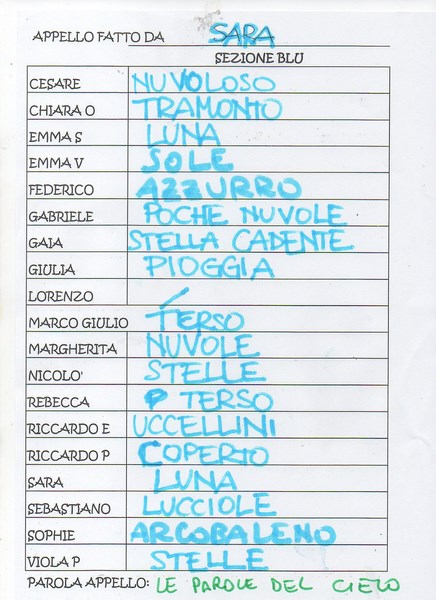 APPELLO FATTO DA SARA
SEZIONE BLU
CESARE NUVOLOSO
CHIARA O TRAMONTO
EMMA S LUNA
EMMA V SOLE
FEDERICO AZZURRO
GABRIELE POCHE NUVOLE
GAIA STELLA CADENTE
GIULIA PIOGGIA
LORENZO
MARCO GIULIO TERSO
MARGHERITA NUVOLE
NICOLO' STELLE
REBECCA P TERSO
RICCARDO E UCCELLINI
RICCARDO P COPERTO
SARA LUNA
SEBASTIANO LUCCIOLE
SOPHIE ARCOBALENO
VIOLA P STELLE
PAROLA APPELLO: LE PAROLE DEL CIELO